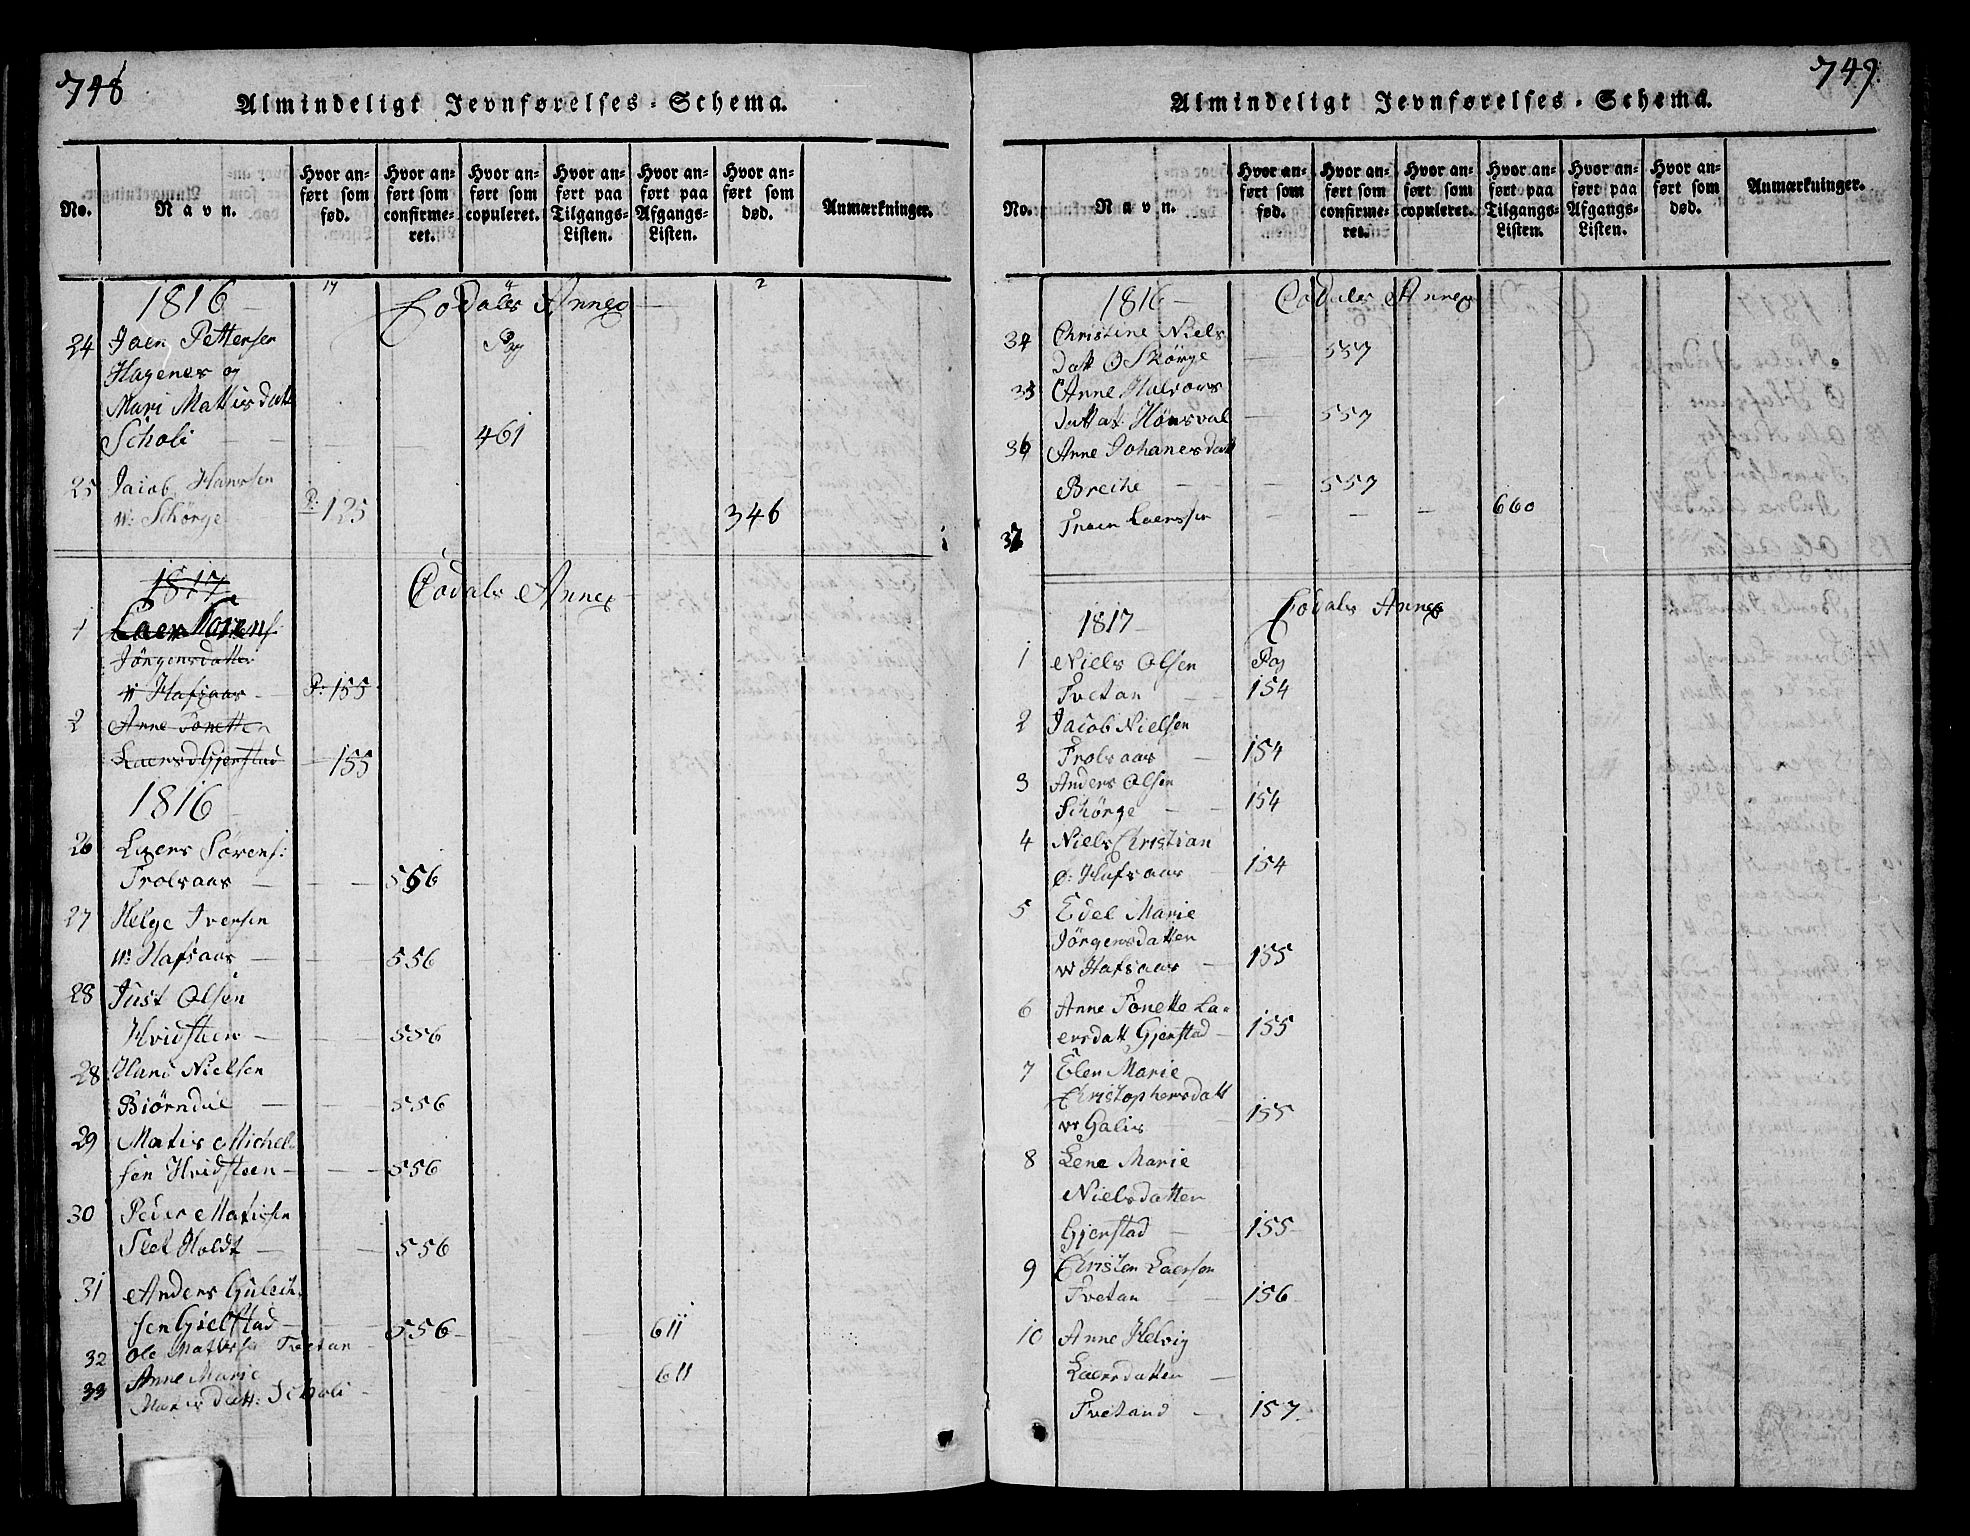 748
Almindeligt Jevnførelses-Schema.
No.
Navn.
Hvor an-
ført som
fød.
Hvor an-
ført som
confirme-
ret.
Hvor an-
ført som
copuleret.
Hvor an-
ført paa
Tilgangs-
Listen.
Hvor an-
ført paa
Afgangs-
Listen.
Hvor an-
ført som
død.
Anmærkninger.
1816 Eodals Annex
24 Jaen Pettersen
Hagenes og
Mari Mathisdatt
Scholi 461
25 Jacob Hanssen
w: Schörge P: 125 346
1817 Eodals Annex
1
Jörgensdatter
w Hafsaas P: 155
2 Anne Tonette
Laersd Gjerstad 155
1816
26 Laers Sörens:
Trolsaas 556
27 Helge Iversen
w: Hafsaas 556
28 Just Olsen
Hvidsteen 556
28 Hans Nielsen
Biörndal 556
29 Matis Michel
sen Hvidsteen 556
30 Peder Matissen
Holdt 556
31 Anders Guleik
sen Gielstad 556 611
32 Ole Mathissen Tvetan
33 Anne Marie 611
Matisdatt: Scholi
749.
Almindeligt Jevnførelses-Schema.
No.
Navn.
Hvor an-
ført som
fød.
Hvor an-
ført som
confirme-
ret.
Hvor an-
ført som
copuleret.
Hvor an-
ført paa
Tilgangs-
Listen.
Hvor an-
ført paa
Afgangs-
Listen.
Hvor an-
ført som
død.
Anmærkninger.
1816 Eodals Annex
34 Christine Niels
datt Ø Skörge 557
35 Anne Halvors
datt at Hönsval 557
36 Anne Johanesdatt
Breche 557
37 Troen Laerssen 660
1817 Eodals Annex
1 Niels Olsen Pag
Tvetan 154
2 Jacob Nielsen
Trolsaas 154
3 Anders Olsen
Schörge 154
4 Niels Christian
Ø: Hafsaas 154
5 Edel Marie
Jörgensdatter
w Hafsaas 155
6 Anne Tonette La-
ersdatt Gjerstad 155
7 Elen Marie
Christophersdatt
w Galis 155
8 Lene Marie
Nielsdatter
Gjerstad 155
9 Christen Laersen
Tvetan 156
10 Anne Helvig
Laersdatter
Tvetand 157